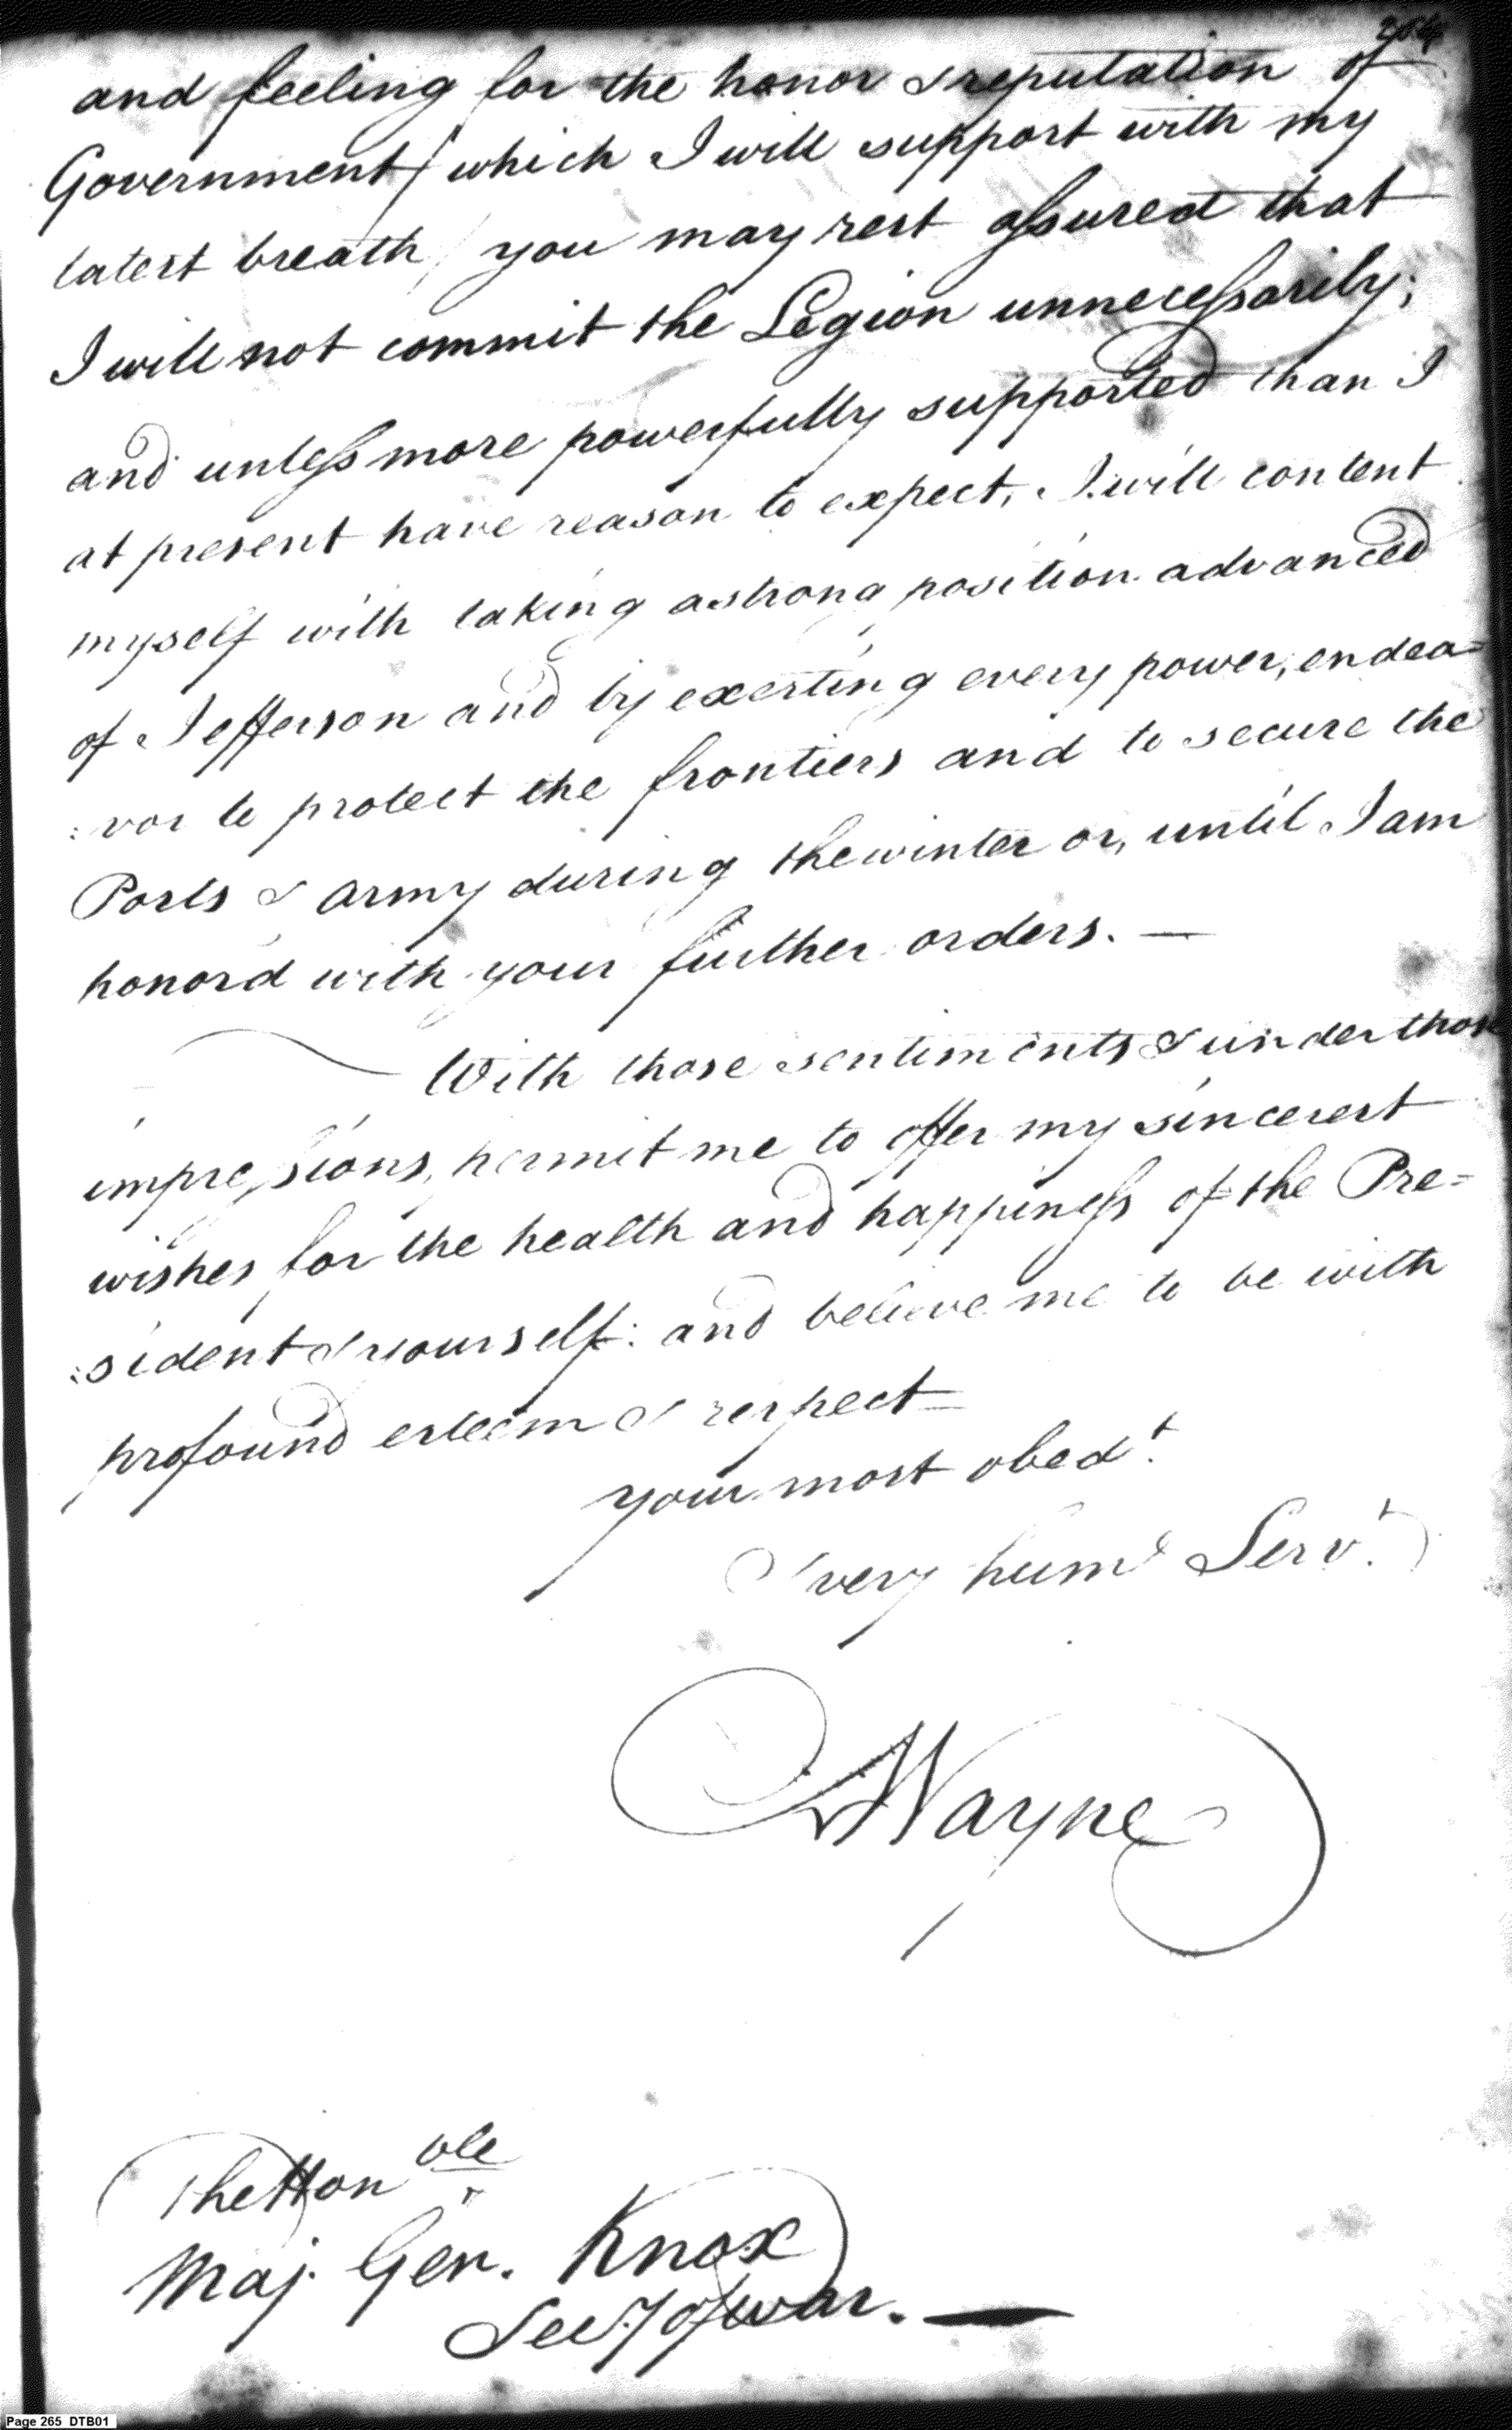 264
and feeling for the honor & reputation of
Government (which I will support with my
latest breath) you may rest assured that
I will not commit the Legion unnecessarily;
and unless more powerfully supported than I
at present have reason to expect, I will content
myself with taking a strong position advanced
of Jefferson and by exerting every power, endea=
:vor to protect the frontiers and to secure the
Posts & Army during the winter or, until I am
honor'd with your further orders. —
With those sentiments & under those
impressions, permit me to offer my sincerest
wishes for the health and happiness of the Pre=
:sident & yourself: and believe me to be with
profound esteem & respect=
your most obedt.
& very humb Servt.
A Wayne
The Honble
Maj. Gen. Knox
Secy of War. —
Page 265 DTB01